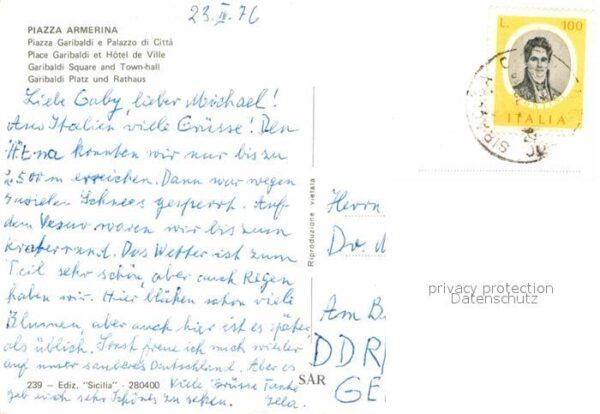 23. IV. 76
PIAZZA ARMERINA
Piazza Garibaldi e Palazzo di Città
Place Garibaldi et Hôtel de Ville
Garibaldi Square and Town-hall
Garibaldi Platz und Rathaus
Liebe Gaby, lieber Michael!
Aus Italien viele Grüsse! Den
Ätna konnten wir nur bis zu
2500 m erreichen. Dann war wegen
zuvielen Schnees gesperrt. Auf
dem Vesuv waren wir bis zum
Kraterrand. Das Wetter ist zum
Teil sehr schön, aber auch Regen
haben wir. Hier blühen schon viele
Blumen, aber auch hier ist es später
als üblich. Sonst freue ich mich wieder
auf unser sauberes Deutschland. Aber es
gab auch sehr Schönes zu sehen.
Viele Grüsse Tante
239 - Ediz. "Sicilia" - 280400
SAR
Riproduzione vietata
L. 100
ITALIA
Herrn
Dr.
Am B
DDR
GE
privacy protection
Datenschutz